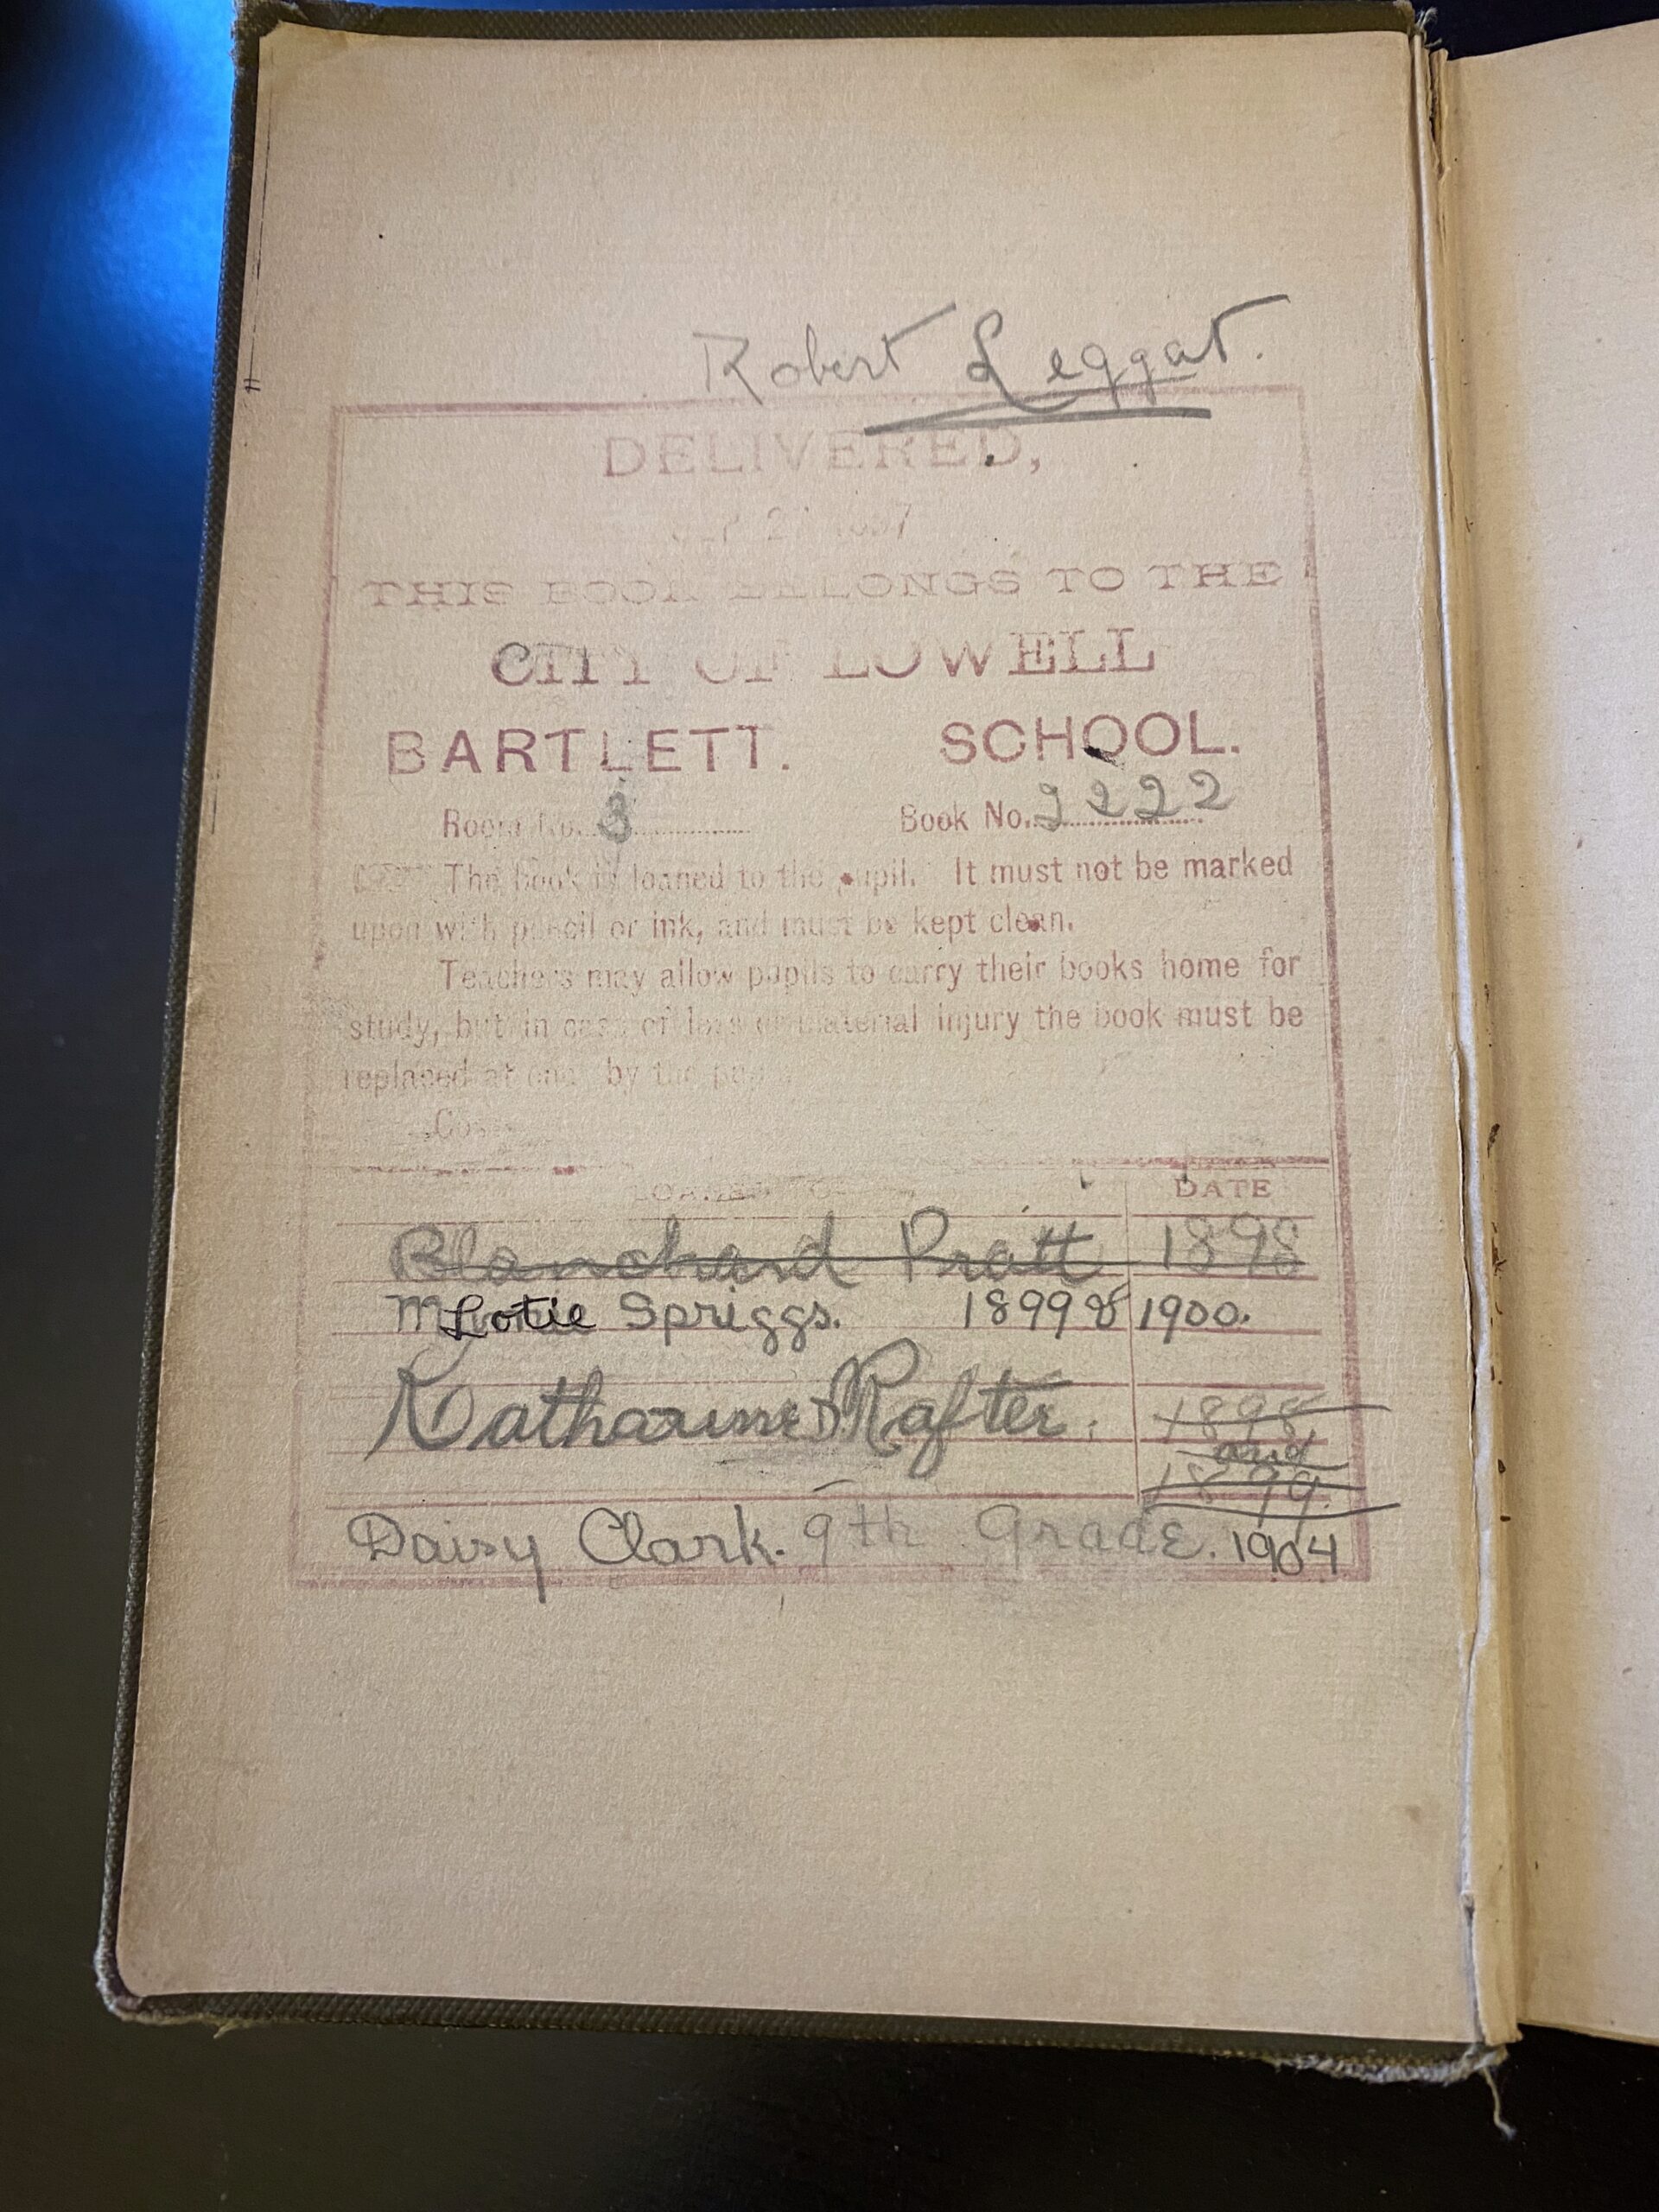 Robert Leggat.
DELIVERED,
THIS BOOK BELONGS TO THE
CITY OF LOWELL
BARTLETT. SCHOOL.
Room No. 3 Book No. 2222
The book is loaned to the pupil. It must not be marked
upon with pencil or ink, and must be kept clean.
Teachers may allow pupils to carry their books home for
study, but in case of loss or material injury the book must be
replaced at once by the pupil
LOANED TO DATE
Blanchard Pratt 1898
Lotie Spriggs. 1899 & 1900.
Katharine Rafter. 1898
and
1899.
Daisy Clark. 9th Grade. 1904